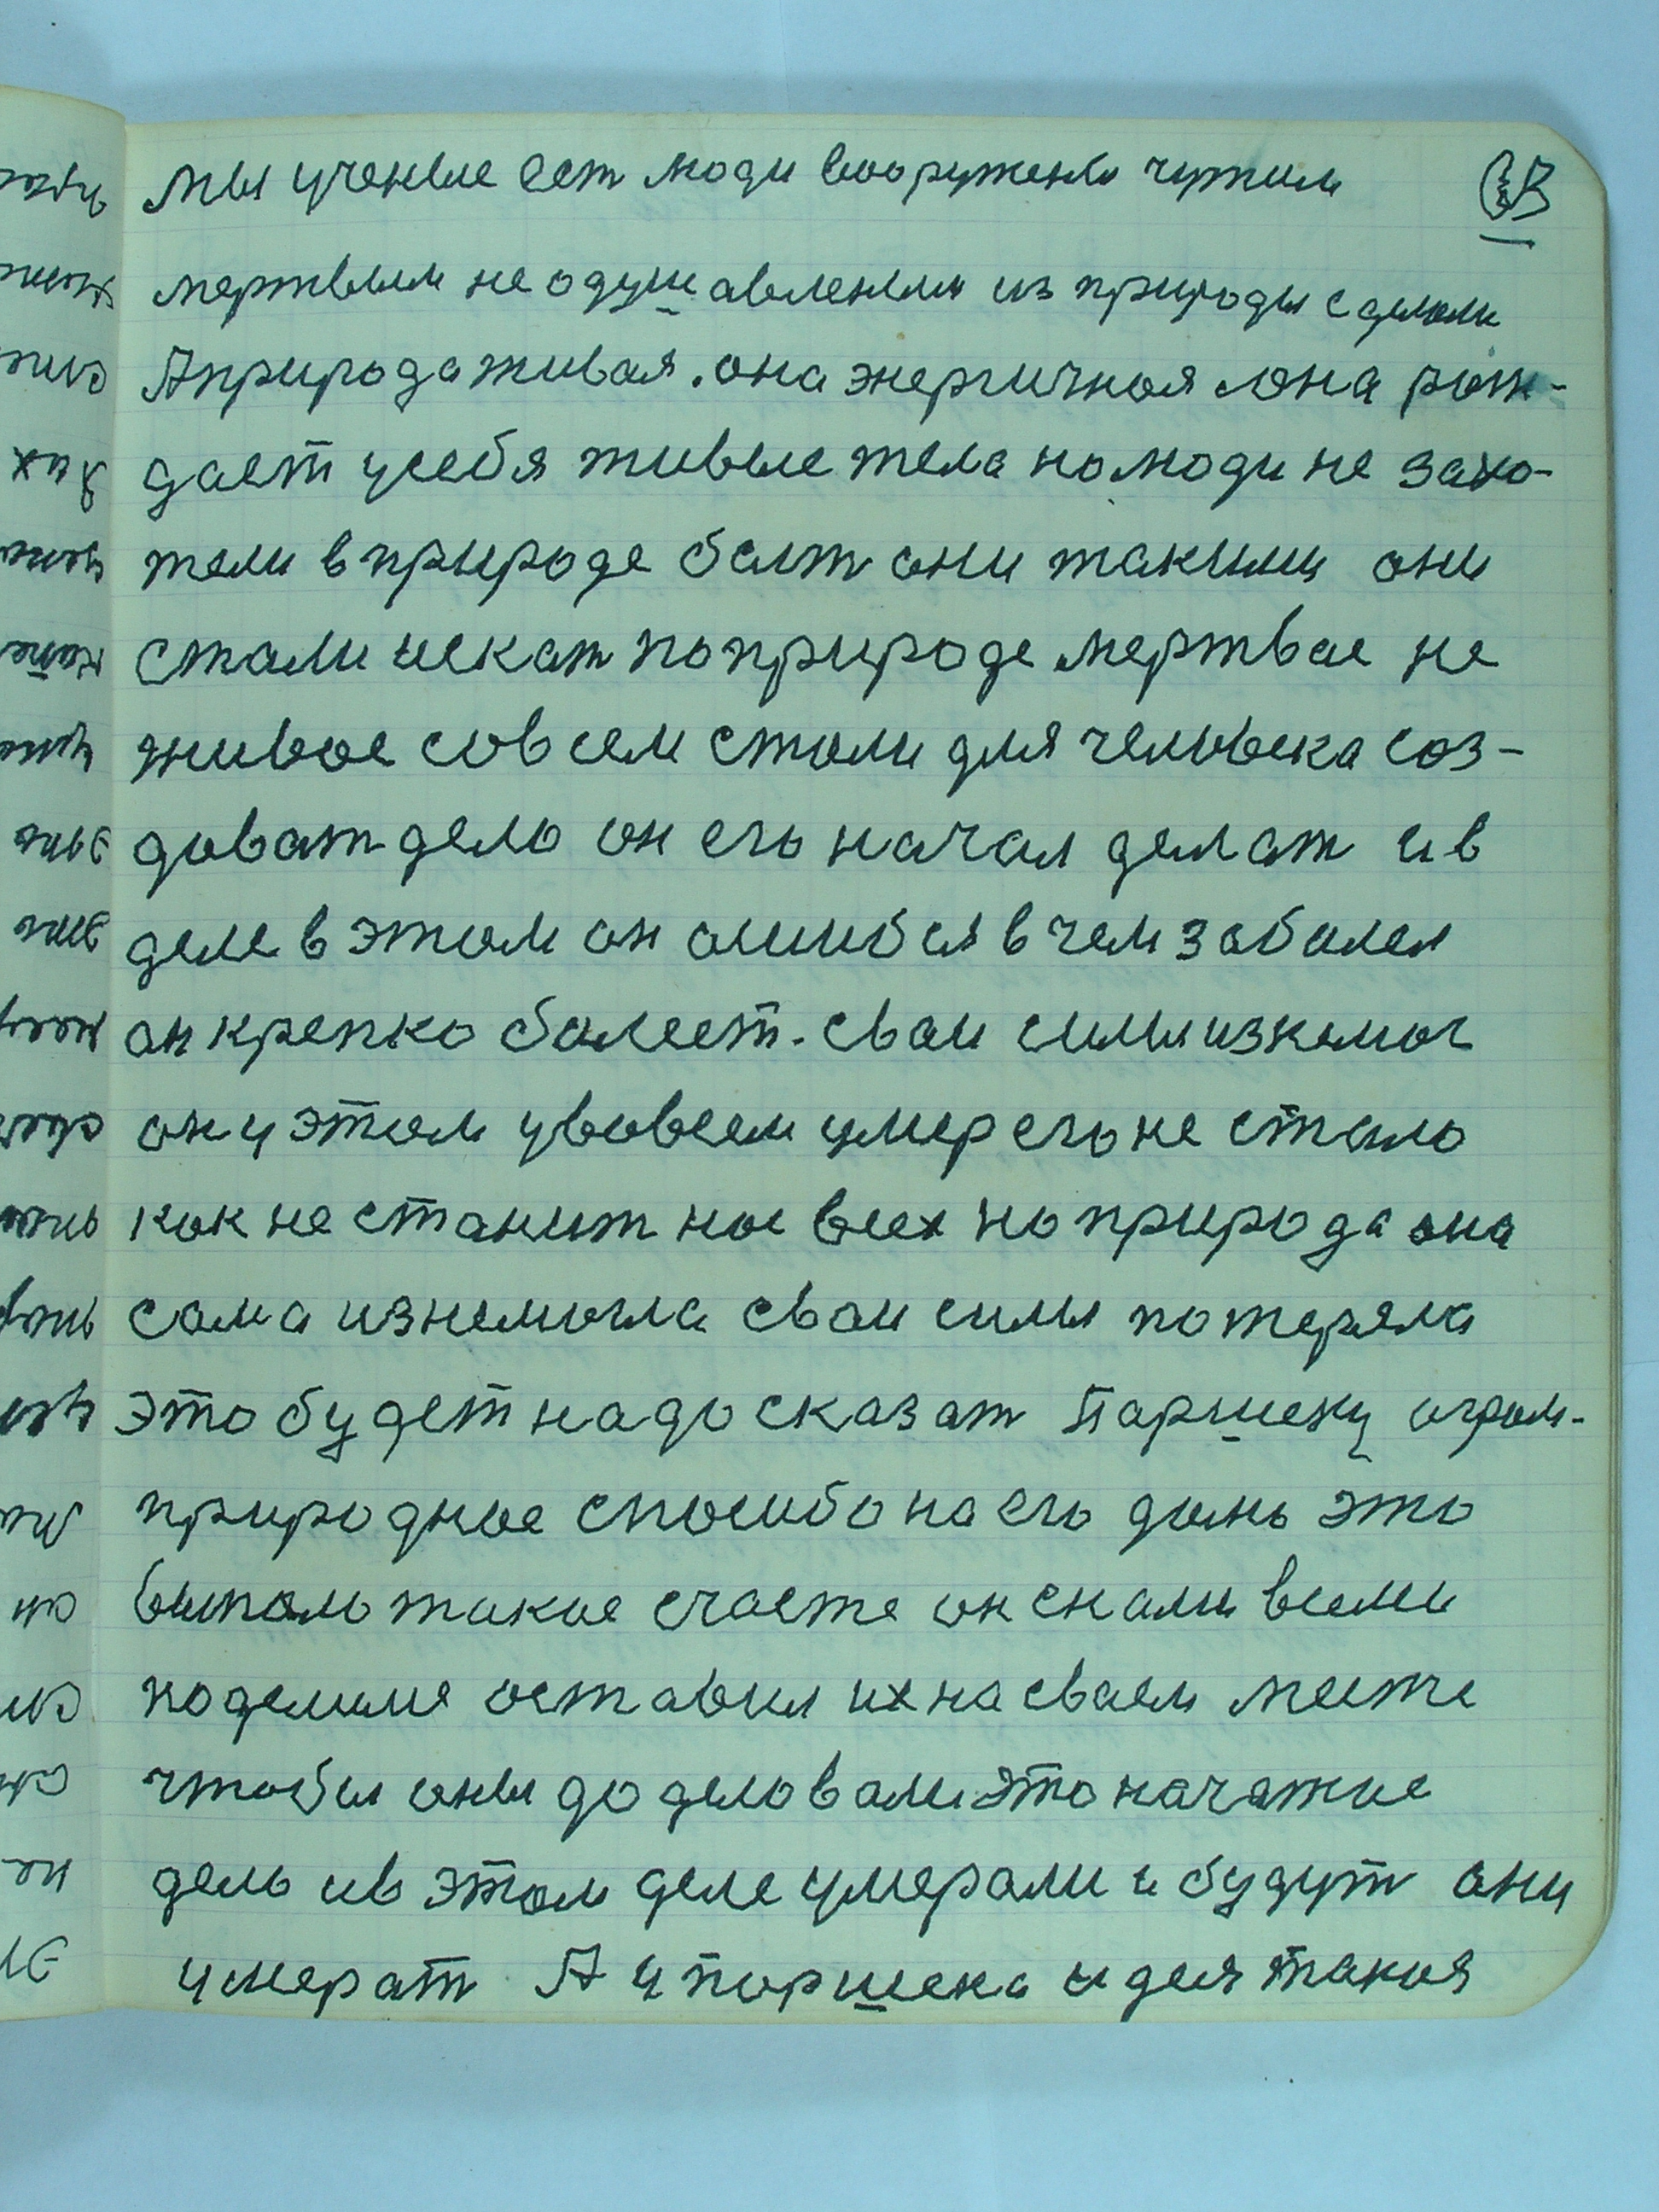 мы ученые ест люди вооружены чужим
мертвым не одушавленым из природы сделали
А природа живая. она энергичная она рож-
дает у себя живые тела но люди не захо-
тели в природе быт они такими они
стали искат по природе мертвое не
живое совсем стали для человека соз-
доват дело он его начал делат и в
деле в этом он ошибся в чем заболел
он крепко болеет. свои силы изнемог
он у этом увовсем умер его не стало
как не станит нас всех но природа она
сама изнемогла свои силы потеряла
это будет надо сказат Паршеку огром-
природное спосибо на его долю это
выпало такое счастя он с нами всеми
поделился оставил их на своем месте
чтобы оны доделовали это начатие
дело и в этом деле умерали и будут они
умерат А у поршека идея такая